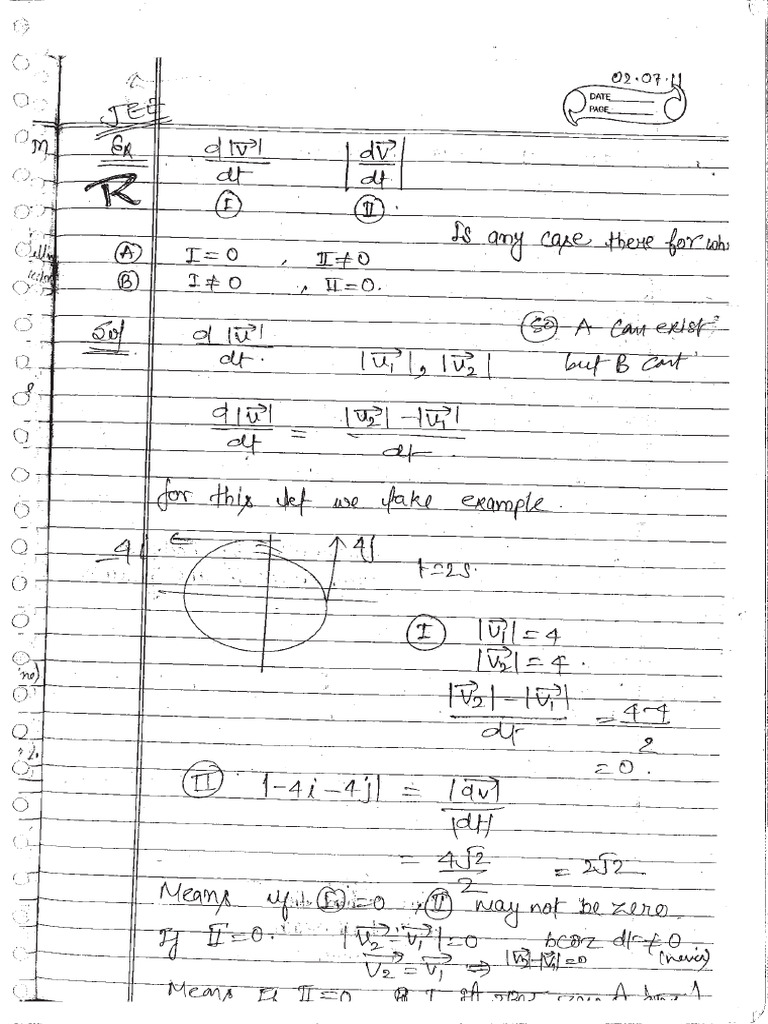 02.07.11
DATE
PAGE
JEE
Ex d|v⃗|/dt |dv⃗/dt|
R Ⓘ Ⓘ︎Ⓘ
Is any case there for
Ⓐ I=0 , II≠0
Ⓑ I≠0 , II=0.
Sol d|v⃗|/dt. |v₁⃗|, |v₂⃗| (so) A can exist
but B cant
d|v⃗|/dt = |v₂⃗|-|v₁⃗|/dt
for this let we take example
-4i 4j t=2s.
(I) |v₁⃗|=4
|v₂⃗|=4.
|v₂⃗|-|v₁⃗|/dt = 4-4/2
=0.
(II) |-4i-4j| = |dv⃗|/|dt|
= 4√2/2 = 2√2
Means if (I)=0, (II) may not be zero.
If II=0. |v₂⃗-v₁⃗|=0 bcoz dt≠0
v₂⃗=v₁⃗ ⇒ |v₂⃗|-|v₁⃗|=0 (never)
Means II=0